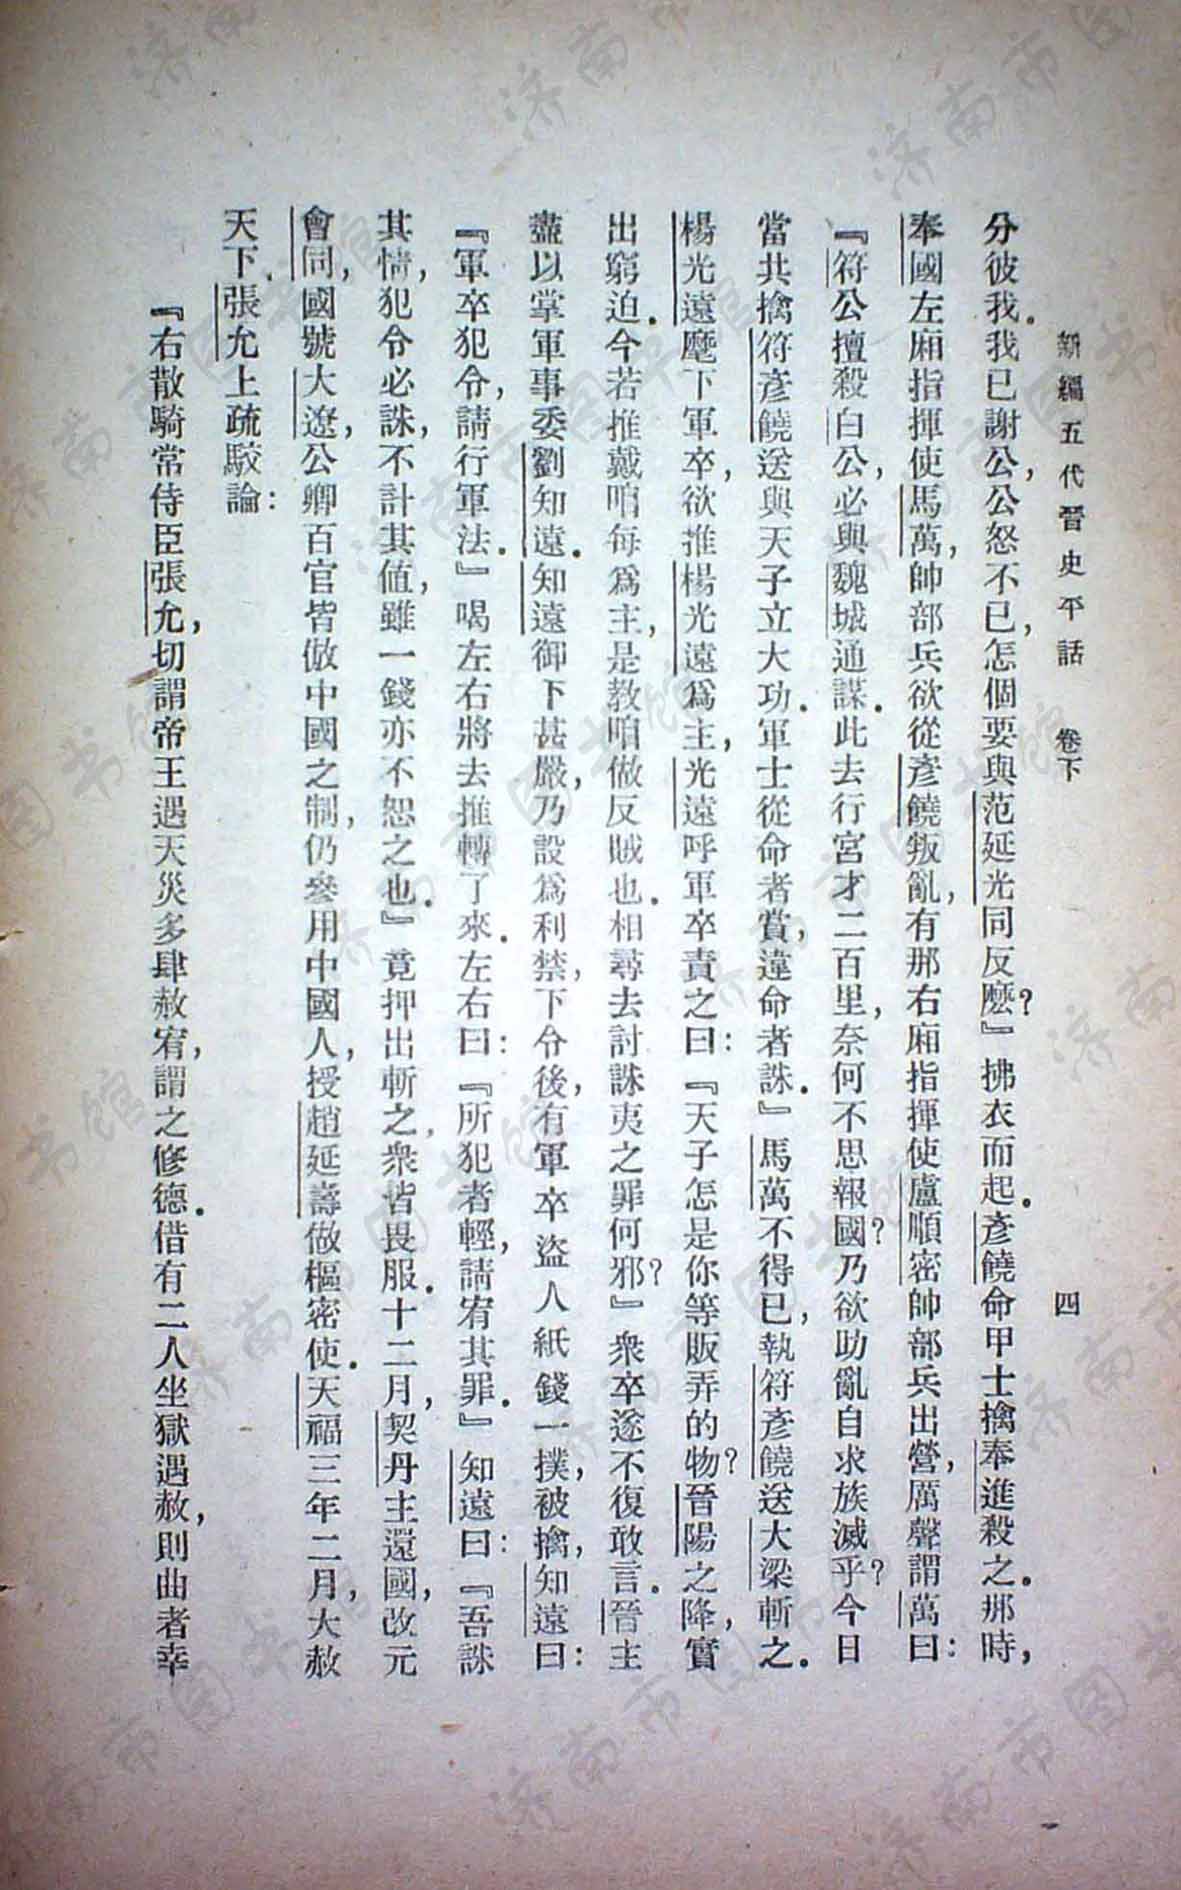 新編五代晉史平話　卷下　四
分彼我．我已謝公，公怒不已，怎個要與范延光同反麽？』拂衣而起．彥饒命甲士擒奉進殺之．那時，
奉國左廂指揮使馬萬，帥部兵欲從彥饒叛亂，有那右廂指揮使盧順密帥部兵出營，厲聲謂萬曰：
『符公擅殺白公，必與魏城通謀．此去行宮才二百里，奈何不思報國？乃欲助亂自求族滅乎？今日
當共擒符彥饒送與天子立大功．軍士從命者賞，違命者誅．』馬萬不得已，執符彥饒送大梁斬之．
楊光遠麾下軍卒，欲推楊光遠爲主，光遠呼軍卒責之曰：『天子怎是你等販弄的物？晉陽之降，實
出窮迫．今若推戴咱每爲主，是教咱做反賊也．相尋去討誅夷之罪何邪？』衆卒遂不復敢言．晉主
盡以掌軍事委劉知遠．知遠御下甚嚴，乃設爲利禁，下令後，有軍卒盜人紙錢一撲，被擒，知遠曰：
『軍卒犯令，請行軍法．』喝左右將去推轉了來．左右曰：『所犯者輕，請宥其罪．』知遠曰：『吾誅
其情，犯令必誅，不計其値，雖一錢亦不恕之也．』竟押出斬之，衆皆畏服．十二月，契丹主還國，改元
會同，國號大遼，公卿百官皆倣中國之制，仍參用中國人，授趙延壽做樞密使．天福三年二月，大赦
天下．張允上疏駁論：
『右散騎常侍臣張允，切謂帝王遇天災多肆赦宥，謂之修德．借有二人坐獄遇赦，則曲者幸